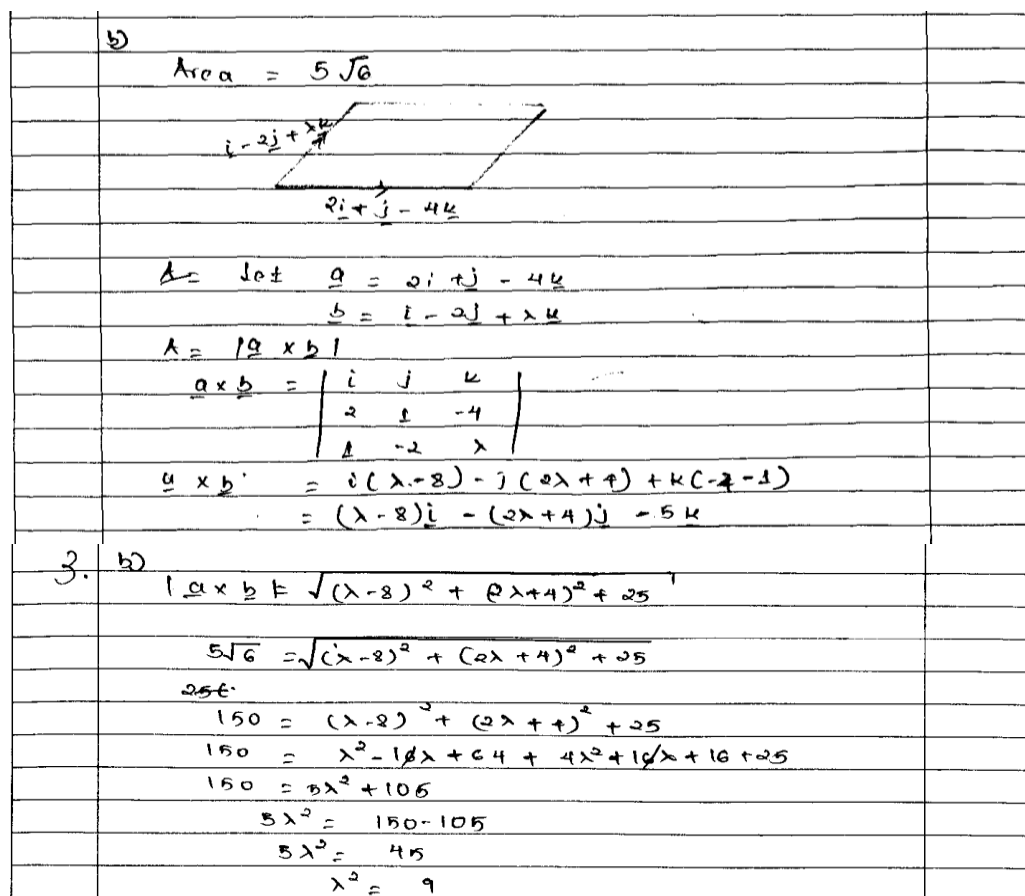 b)
Area = 5√6
i - 2j + λk
2i + j - 4k
A = let a = 2i + j - 4k
b = i - 2j + λk
A = |a × b|
a × b = | i j k
2 1 -4
1 -2 λ |
a × b = i(λ-8) - j(2λ+4) + k(-4-1)
= (λ-8)i - (2λ+4)j - 5k
3. b)
|a × b| = √(λ-8)² + (2λ+4)² + 25
5√6 = √(λ-8)² + (2λ+4)² + 25
25t.
150 = (λ-8)² + (2λ+4)² + 25
150 = λ² - 16λ + 64 + 4λ² + 16λ + 16 + 25
150 = 5λ² + 105
5λ² = 150-105
5λ² = 45
λ² = 9